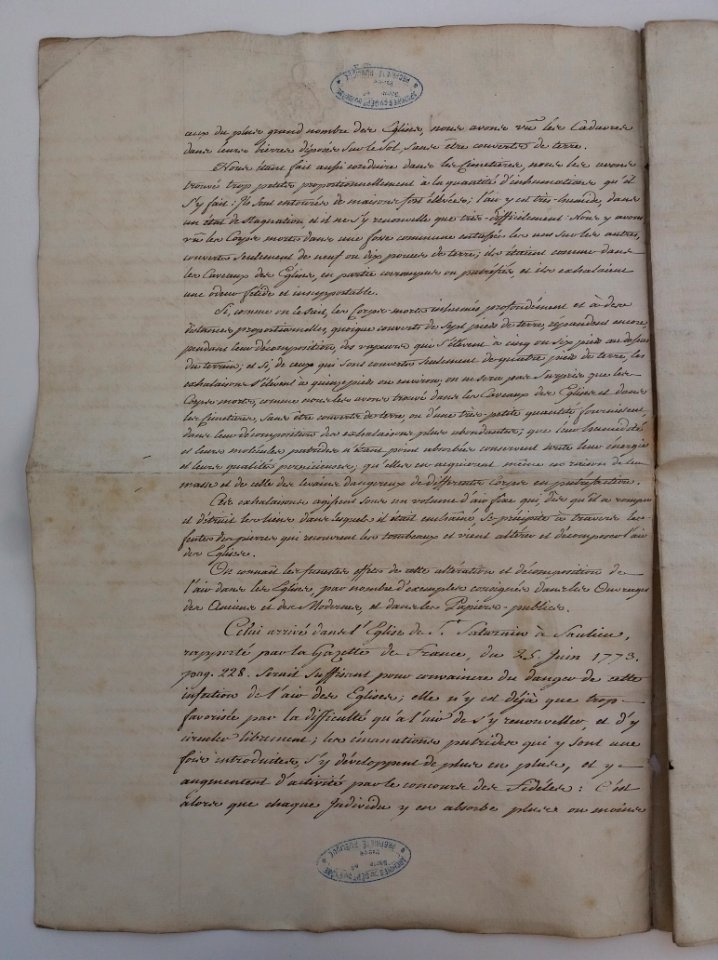 aux du plus grand nombre des Eglises, nous avons vû les Cadavres
dans leurs bierres déposés sur le sol, sans etre couverts de terre.
Nous étant fait aussi conduire dans les Cimetieres, nous les avons
trouvé trop petits proportionnellement à la quantité d'inhumations qu'il
s'y fait: Ils sont entourés de maisons fort élevées; l'air y est très-humide, dans
un état de stagnation, et il ne s'y renouvelle que très-difficilement. Nous y avons
vû les Corps morts dans une fosse commune entassés les uns sur les autres,
couverts seulement de neuf ou dix pouces de terre; ils étaient comme dans
les Caveaux des Eglises, en partie corrompus ou putréfiés, et ils exhalaient
une odeur fétide et insupportable.
Si, comme on le sait, les Corps morts inhumés profondément et à des
distances proportionnelles, quoique couverts de sept pieds de terre, répandent encore,
pendant leur décomposition, des vapeurs qui s'élévent à cinq ou six pieds au dessus
du terrain; et si, de ceux qui sont couverts seulement de quatre pieds de terre, les
exhalaisons s'élévent à quinze pieds ou environ, on ne sera pas surpris que les
Corps morts, comme nous les avons trouvé dans les Caveaux des Eglises et dans
les Cimetieres, sans être couverts de terre, ou d'une très-petite quantité fournissent,
dans leur décomposition des exhalaisons plus abondantes; que leur humidité
et leurs molécules putrides n'étant point absorbées conservent toute leur énergie
et leurs qualités pernicieuses; qu'elles en acquierent même en raison de leur
masse et de celle des levains dangereux de différents Corps en putréfaction.
Ces exhalaisons agissent sous un volume d'air fixe qui dès qu'il a rompu
et détruit les liens dans lesquels il était enchaîné, se précipite à travers les
fentes des pierres qui recouvrent les tombeaux et vient altérer et décomposer l'air
des Eglises.
On connaît les funestes effets de cette altération et décomposition de
l'air dans les Eglises, par nombre d'exemples consignés dans les Ouvrages
des Anciens et des Modernes, et dans les Papiers-publics.
Celui arrivé dans l'Eglise de St. Saturnin à Saulieu,
rapporté par la Gazette de France, du 25 Juin 1773.
pag. 228. serait suffisant pour convaincre du danger de cette
infection de l'air des Eglises; elle n'y est déjà que trop
favorisée par la difficulté qu'a l'air de s'y renouveller, et d'y
circuler librement; les émanations putrides qui y sont une
fois introduites, s'y développent de plus en plus, et y
augmentent d'activité par le concours des Fidéles: C'est
alors que chaque Individu y en absorbe plus ou moins
PROPRIÉTÉ PUBLIQUE